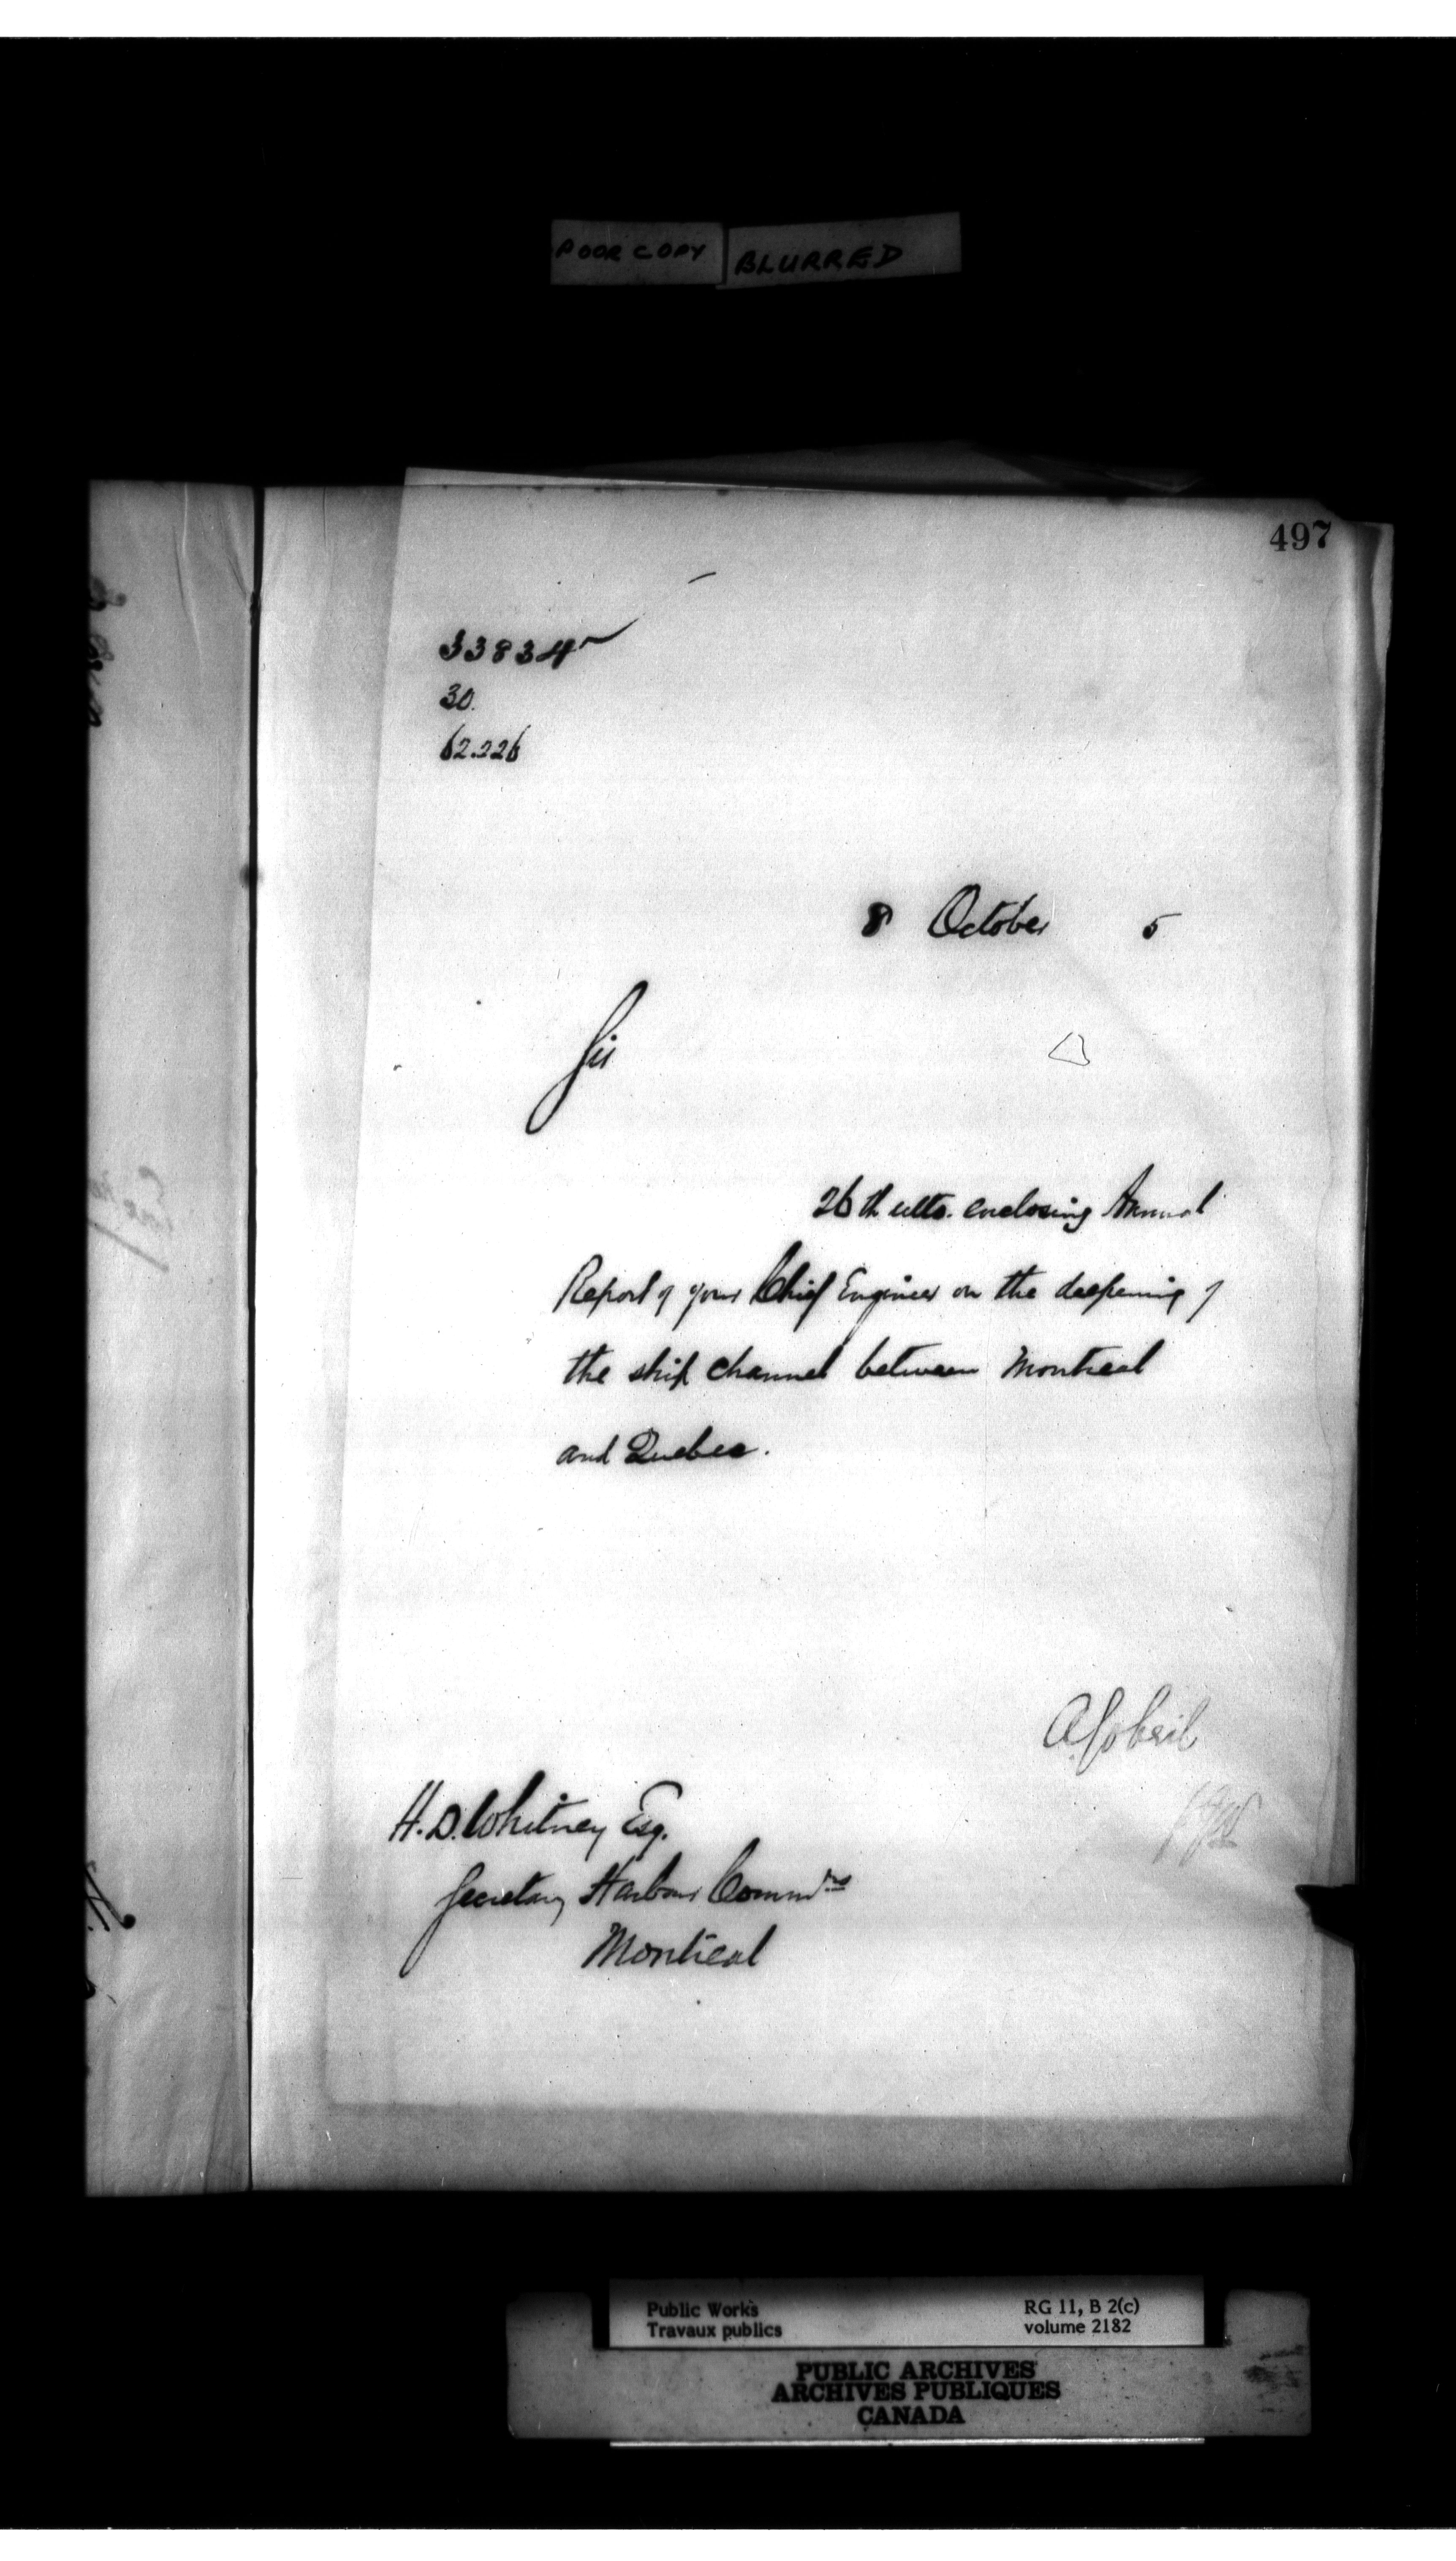 POOR COPY BLURRED
497
33834
30.
62.226
8 October 5
Sir
26th ulto. enclosing Annual
Report of your Chief Engineer on the deepening of
the ship channel between Montreal
and Quebec.
A Gobeil
H. D. Whitney Esq.
Secretary Harbour Comm'rs
Montreal
Public Works RG 11, B 2(c)
Travaux publics volume 2182
PUBLIC ARCHIVES
ARCHIVES PUBLIQUES
CANADA